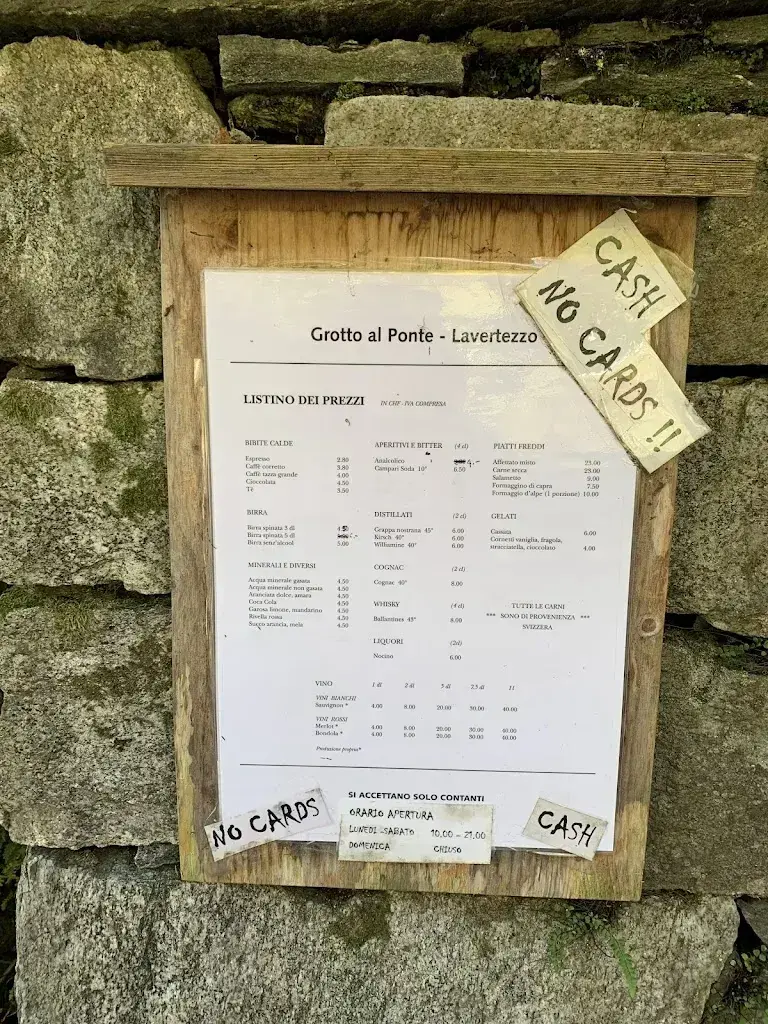 CASH
NO CARDS !!
Grotto al Ponte - Lavertezzo
LISTINO DEI PREZZI IN CHF - IVA COMPRESA
BIBITE CALDE
Espresso 2.80
Caffè corretto 3.80
Caffè tazza grande 4.00
Cioccolata 4.50
Tè 3.50
BIRRA
Birra spinata 3 dl 4.50
Birra spinata 5 dl
Birra senz'alcool 5.00
MINERALI E DIVERSI
Acqua minerale gasata 4.50
Acqua minerale non gasata 4.50
Aranciata dolce, amara 4.50
Coca Cola 4.50
Gazosa limone, mandarino 4.50
Rivella rossa 4.50
Succo arancia, mela 4.50
APERITIVI E BITTER (4 cl)
Analcolico 4.-
Campari Soda 10° 6.50
DISTILLATI (2 cl)
Grappa nostrana 45° 6.00
Kirsch 40° 6.00
Williamine 40° 6.00
COGNAC (2 cl)
Cognac 40° 8.00
WHISKY (4 cl)
Ballantines 43° 8.00
LIQUORI (2cl)
Nocino 6.00
PIATTI FREDDI
Affettato misto 23.00
Carne secca 23.00
Salametto 9.00
Formaggino di capra 7.50
Formaggio d'alpe (1 porzione) 10.00
GELATI
Cassata 6.00
Cornetti vaniglia, fragola,
stracciatella, cioccolato 4.00
TUTTE LE CARNI
*** SONO DI PROVENIENZA ***
SVIZZERA
VINO 1 dl 2 dl 5 dl 7.5 dl 1 l
VINI BIANCHI
Sauvignon * 4.00 8.00 20.00 30.00 40.00
VINI ROSSI
Merlot * 4.00 8.00 20.00 30.00 40.00
Bondola * 4.00 8.00 20.00 30.00 40.00
Produzione propria*
SI ACCETTANO SOLO CONTANTI
NO CARDS
ORARIO APERTURA
LUNEDI - SABATO 10.00 - 21.00
DOMENICA CHIUSO
CASH